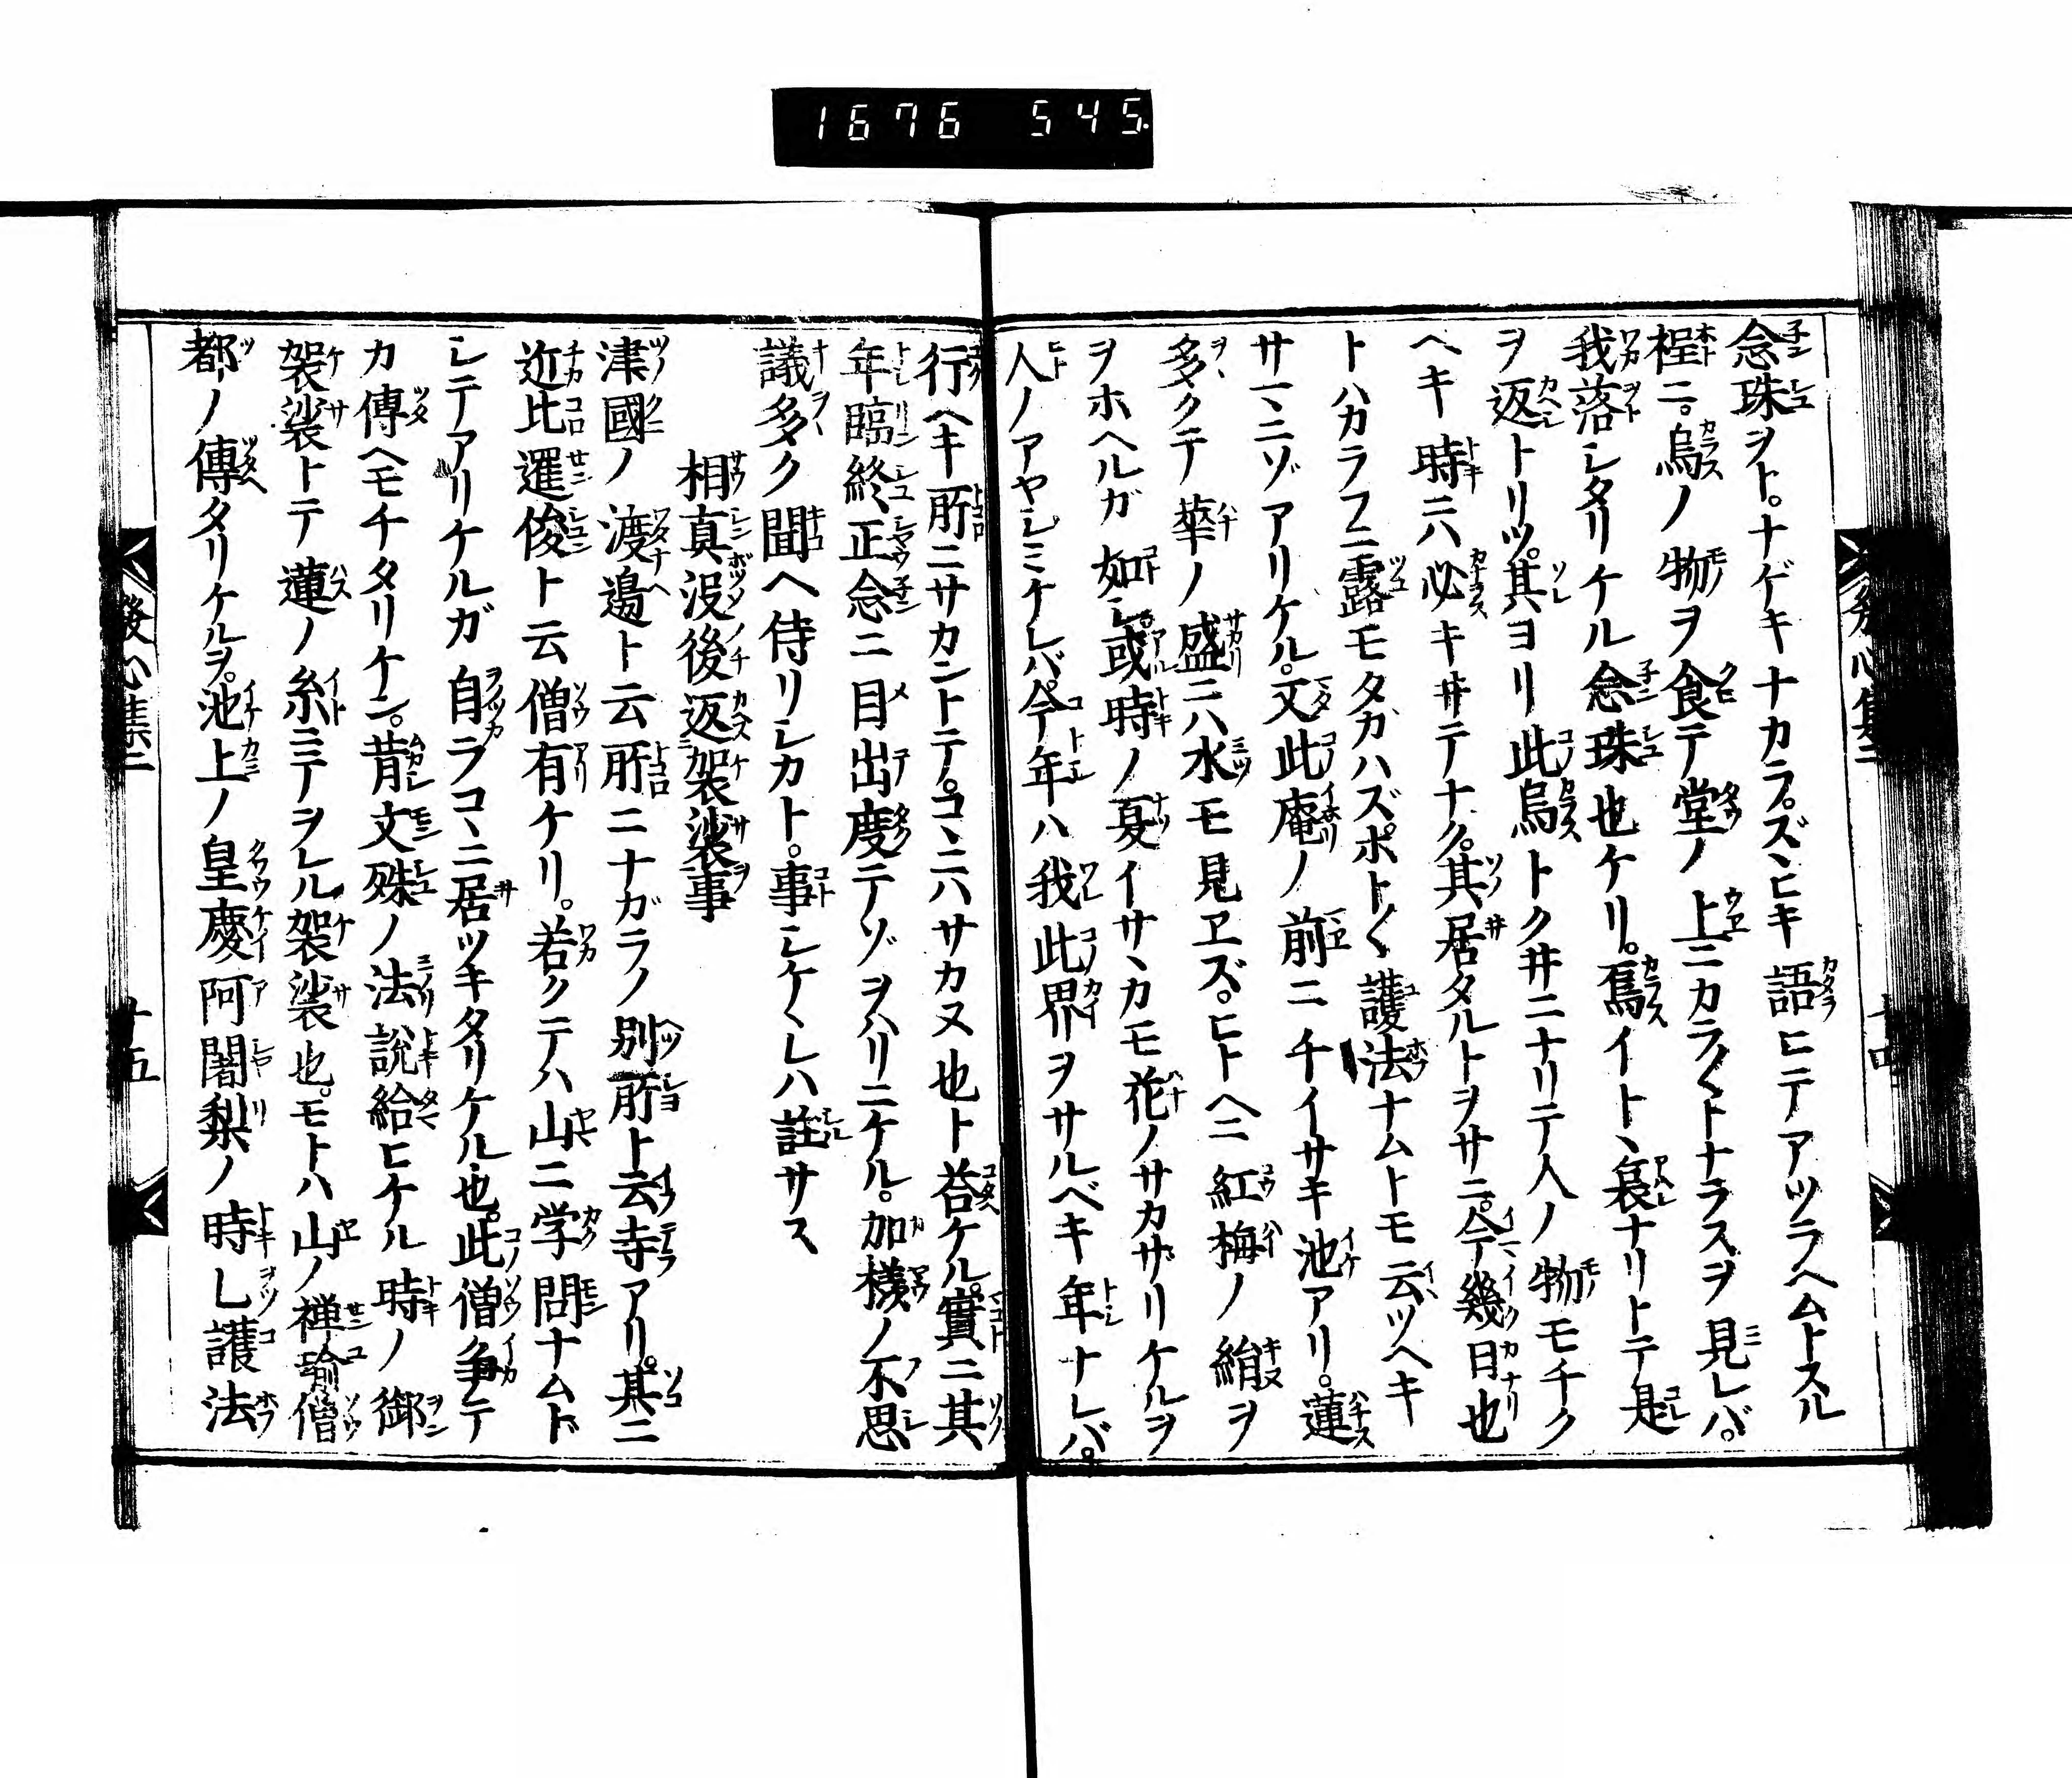 1676 545
念珠ヲト。ナゲキナカラ。ズヽヒキ語ヒテアツラヘムトスル
程ニ。烏ノ物ヲ食テ堂ノ上ニカラ〱トナラスヲ見レバ。
我落シタリケル念珠也ケリ。烏イトヽ哀ナリトテ是
ヲ返トリツ。其ヨリ此烏トクヰニナリテ人ノ物モチク
ヘキ時ニハ必キヰテナク。其居タルトヲサニ。今幾日也
トハカラフニ露モタカハズ。ポト〱護法ナムトモ云ツヘキ
サマニゾアリケル。又此庵ノ前ニチイサキ池アリ。蓮
多クテ華ノ盛ニハ水モ見ヱズ。ヒトヘニ紅梅ノ絹ヲ
ヲホヘルガ如シ。或時ノ夏イサヽカモ花ノサカザリケルヲ
人ノアヤシミケレバ。今年ハ我此界ヲサルベキ年ナレバ。
行ヘキ所ニサカントテ。コヽニハサカヌ也ト荅ケル。實ニ其
年臨終正念ニ目出度テゾヲハリニケル。加様ノ不思
議多ク聞ヘ侍リシカト。事シケヽレハ註サス
相真没後返袈裟事
津國ノ渡邊ト云所ニナガラノ別所ト云寺アリ。其ニ
近比暹俊ト云僧有ケリ。若クテハ山ニ学問ナムド
シテアリケルガ自ラコヽニ居ツキタリケル也。此僧争テ
カ傳ヘモチタリケン。昔文殊ノ法説給ヒケル時ノ御
袈裟トテ蓮ノ糸ニテヲレル袈裟也。モトハ山ノ禅瑜僧
都ノ傳タリケルヲ。池上ノ皇慶阿闍梨ノ時し護法
發心集二
廿五